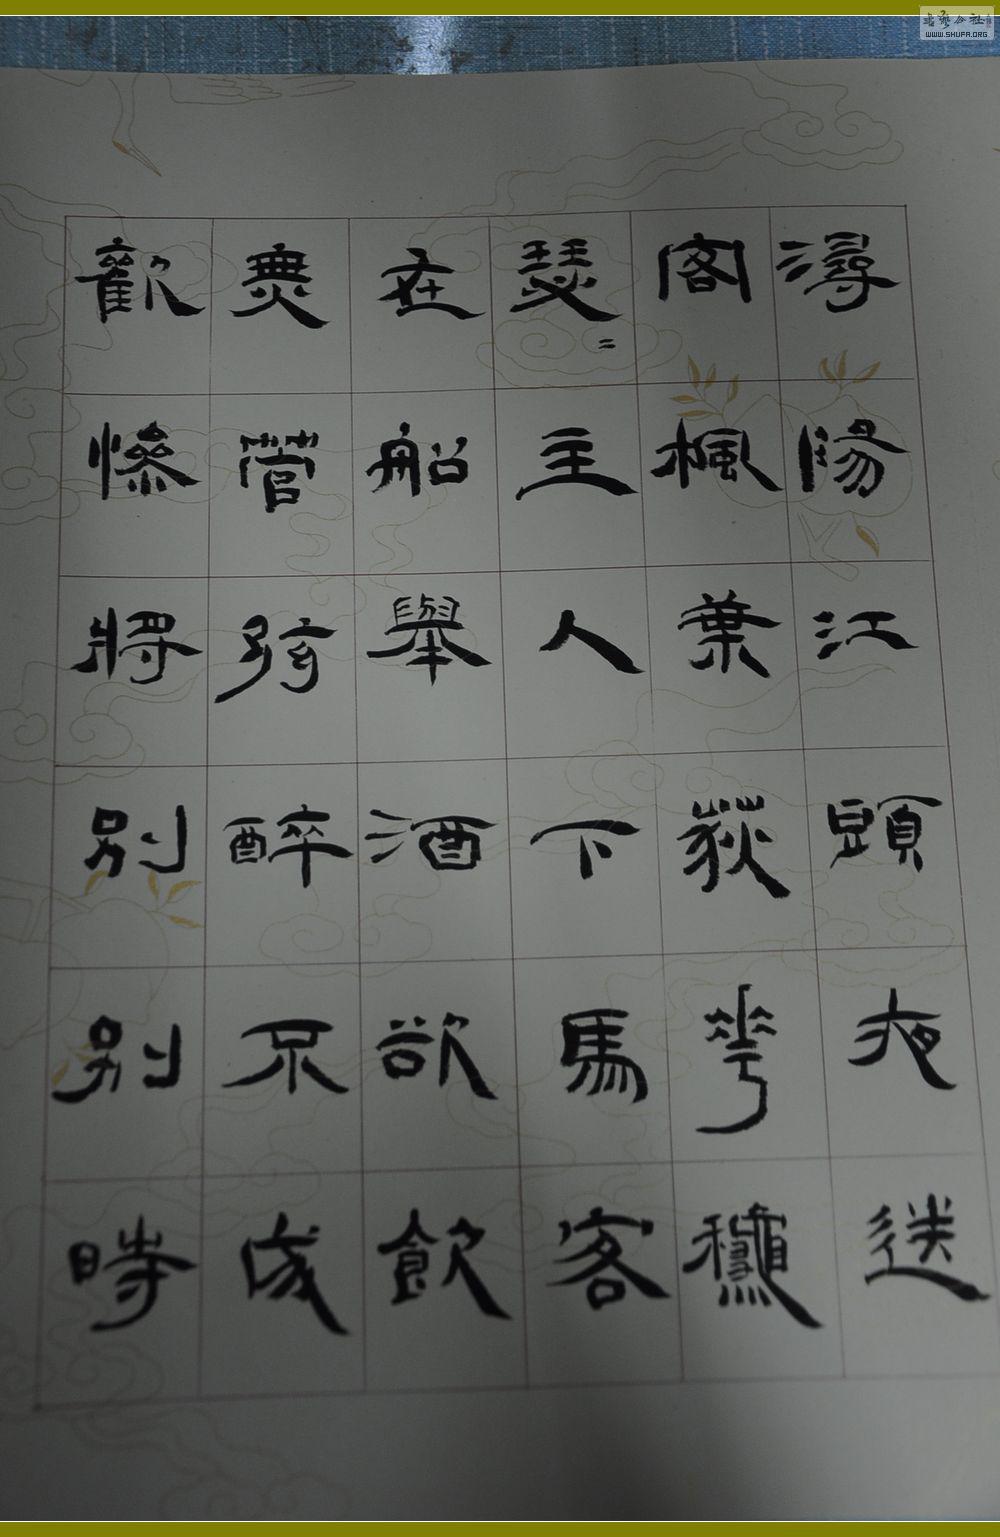 潯陽江頭夜送
客楓葉荻花龝
瑟〃主人下馬客
在船舉酒欲飲
無管弦醉不成
歡慘將別別時
书艺公社
WWW.SHUFA.ORG